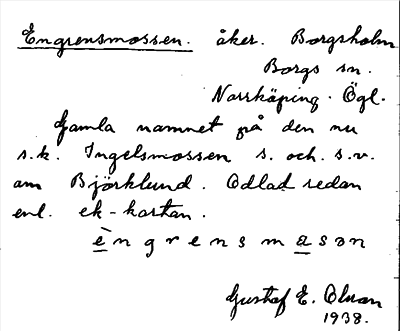 Engrensmossen. åker. Borgsholm
Borgs sn.
Norrköping. Ögl.
Gamla namnet på den nu
s.k. Ingelsmossen s. och. s.v.
om Björklund. Odlad sedan
enl. ek-kartan.
èngrensmasɔn
Gustaf E. Olsson
1938.